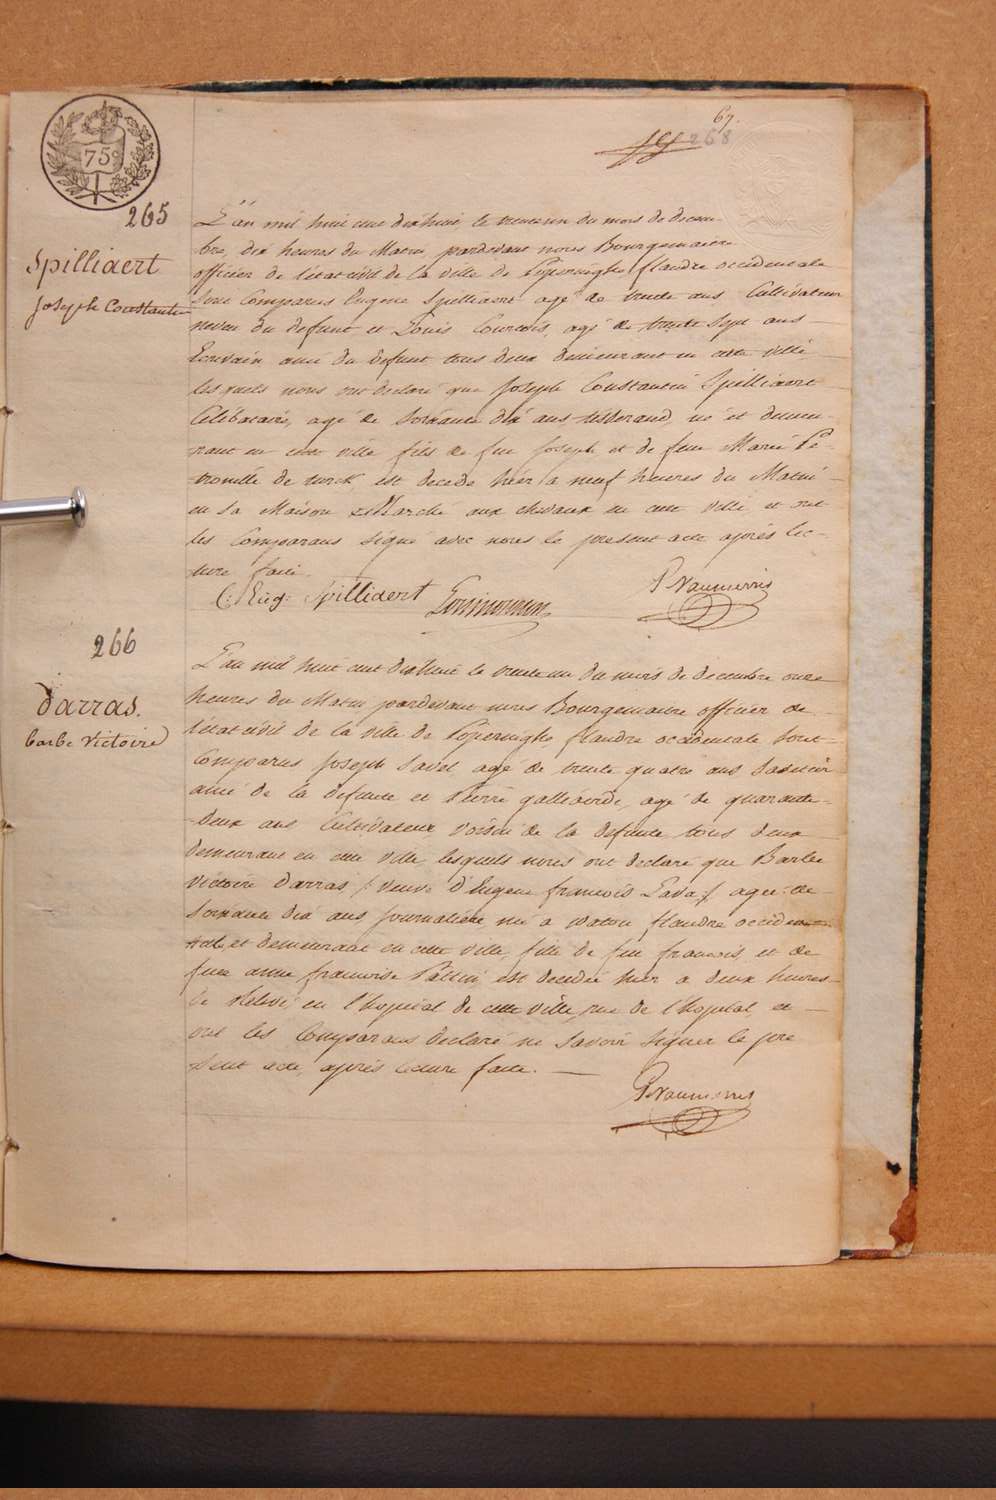 67.
268
75c
265
Spilliaert
Joseph Constantin
L'an mil huit cent dixhuit le trente un du mois de decem-
bre, dix heures du Matin pardevant nous Bourgemaitre
officier de l'état civil de la ville de Poperinghe flandre occidentale
sont Comparus Eugene Spilliaert agé de trente ans Cultivateur
neveu du defunt et Louis Courtois, agé de trente sept ans
Ecrivain ami du defunt tous deux demeurant en cette ville
lesquels nous ont declaré que Joseph Constantin Spilliaert
Celibataire, agé de soixante dix ans, tisserand, né et demeu-
rant en cette ville fils de feu Joseph et de feue Marie Pe-
tronille de turck, est decedé hier a neuf heures du Matin
en sa Maison Marché aux chevaux en cette ville et ont
les Comparans signé avec nous le present acte après lec-
ture faite.
C: Eug: Spilliaert
P Vanmerris
266
Darras.
barbe victoire
L'an mil huit cent dixhuit le trente un du mois de decembre onze
heures du Matin pardevant nous Bourgemaitre officier de
l'état civil de la ville de Poperinghe flandre occidentale sont
Comparus Joseph Savel agé de trente quatre ans
ami de la defunte et Pierre agé de quarante
deux ans Cultivateur, voisin de la defunte tous deux
demeurant en cette ville, lesquels nous ont declaré que Barbe
victoire Darras veuve d'Eugene francois agée de
soixante dix ans journaliere, né a watou flandre occiden-
tale, et demeurant en cette ville, fille de feu francois et de
feue anne francoise est decedée hier a deux heures
de Relevé, en l'hopital de cette ville, rue de l'hopital, et
ont les Comparans declaré ne savoir signer le pre
sent acte, après lecture faite.
P Vanmerris